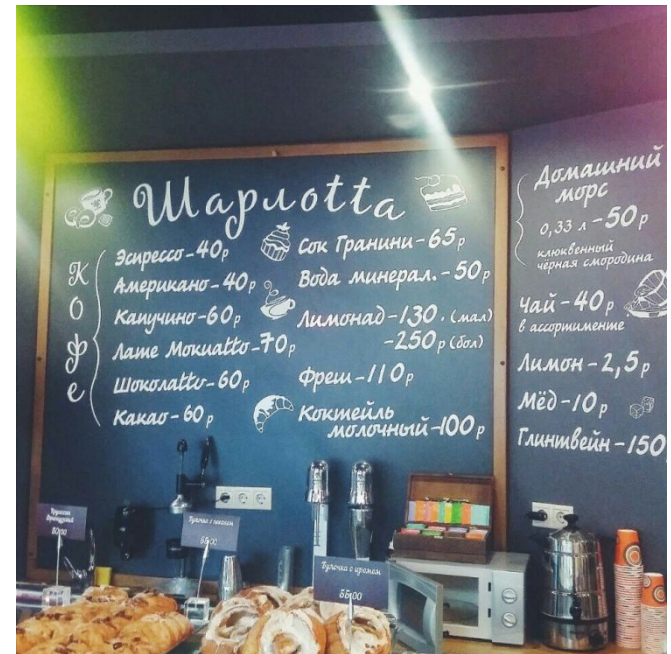 Шарлоtta
Кофе
Эспрессо - 40р
Американо - 40р
Капучино - 60р
Латте Мокиаtto - 70р
Шоколаttо - 60р
Какао - 60р
Сок Гранини - 65р
Вода минерал. - 50р
Лимонад - 130. (мал)
- 250р (бол)
Фреш - 110р
Коктейль
молочный - 100р
Домашний
морс
0,33 л - 50р
клюквенный
чёрная смородина
Чай - 40р
в ассортименте
Лимон - 2,5р
Мёд - 10р
Глинтвейн - 150
Булочка с кремом
55,00